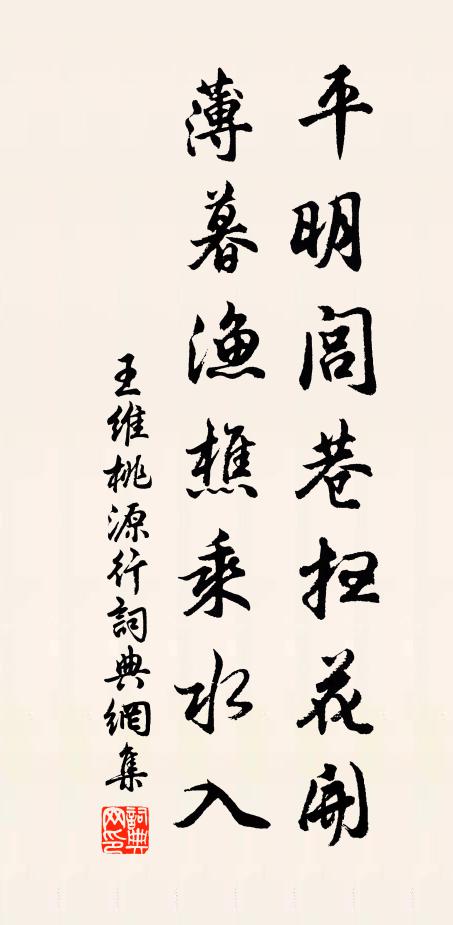 平明閭巷扫花開
薄暮漁樵乘水入
王維桃源行詞典網集
詞典網印